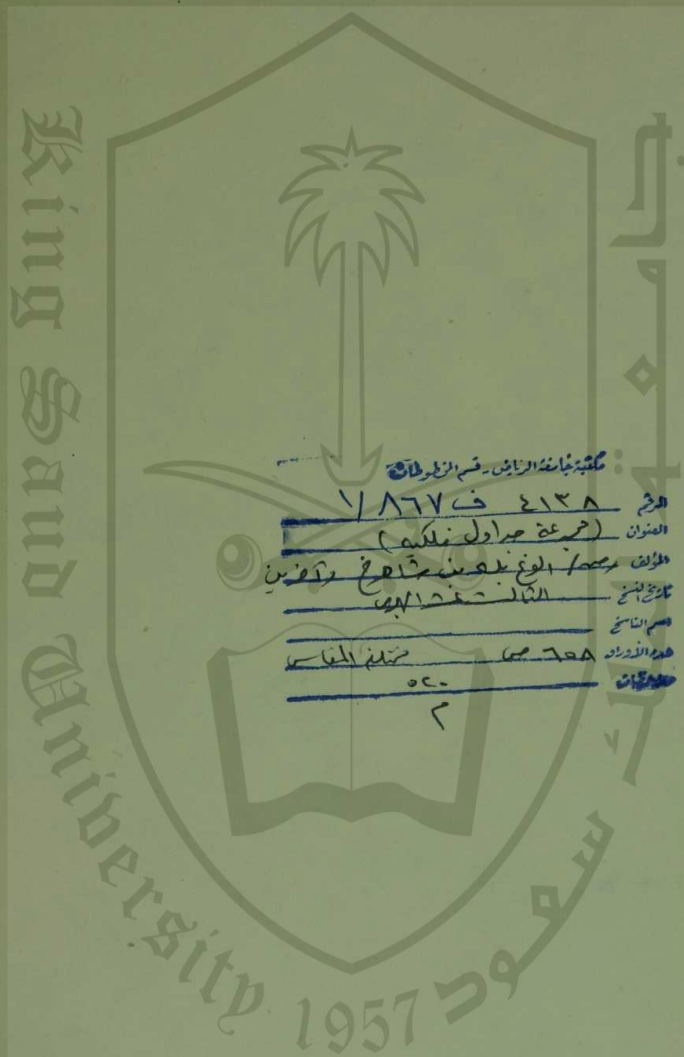 King Saud University 1957
جامعة الملك سعود
مكتبة جامعة الرياض - قسم المخطوطات
الرقم ٤١٣٨ ف ٨٦٧/١
العنوان (مجموعة جداول فلكيه)
المؤلف رصد/ الوغ بك بن شاهرخ وآخرين
تاريخ النسخ الثالث عشر الهجري
اسم الناسخ
عدد الأوراق ٦٥٨ ص مختلف المقاس
٥٢٠
م